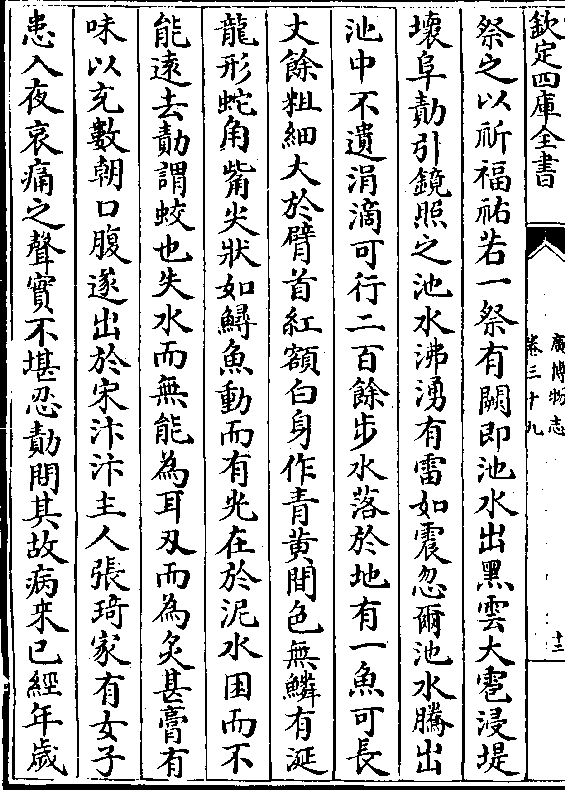 欽定四庫全書
廣博物志
卷三十九
十三
祭之以祈福祐若一祭有闕即池水出黑雲大雹浸堤
壞阜勣引鏡照之池水沸湧有雷如震忽爾池水騰出
池中不遺涓滴可行二百餘步水落於地有一魚可長
丈餘粗細大於臂首紅額白身作青黃間色無鱗有涎
龍形蛇角觜尖狀如鱘魚動而有光在於泥水困而不
能遠去勣謂蛟也失水而無能為耳刃而為炙甚膏有
味以充數朝口腹遂出於宋汴汴主人張琦家有女子
患入夜哀痛之聲實不堪忍勣問其故病來已經年歲